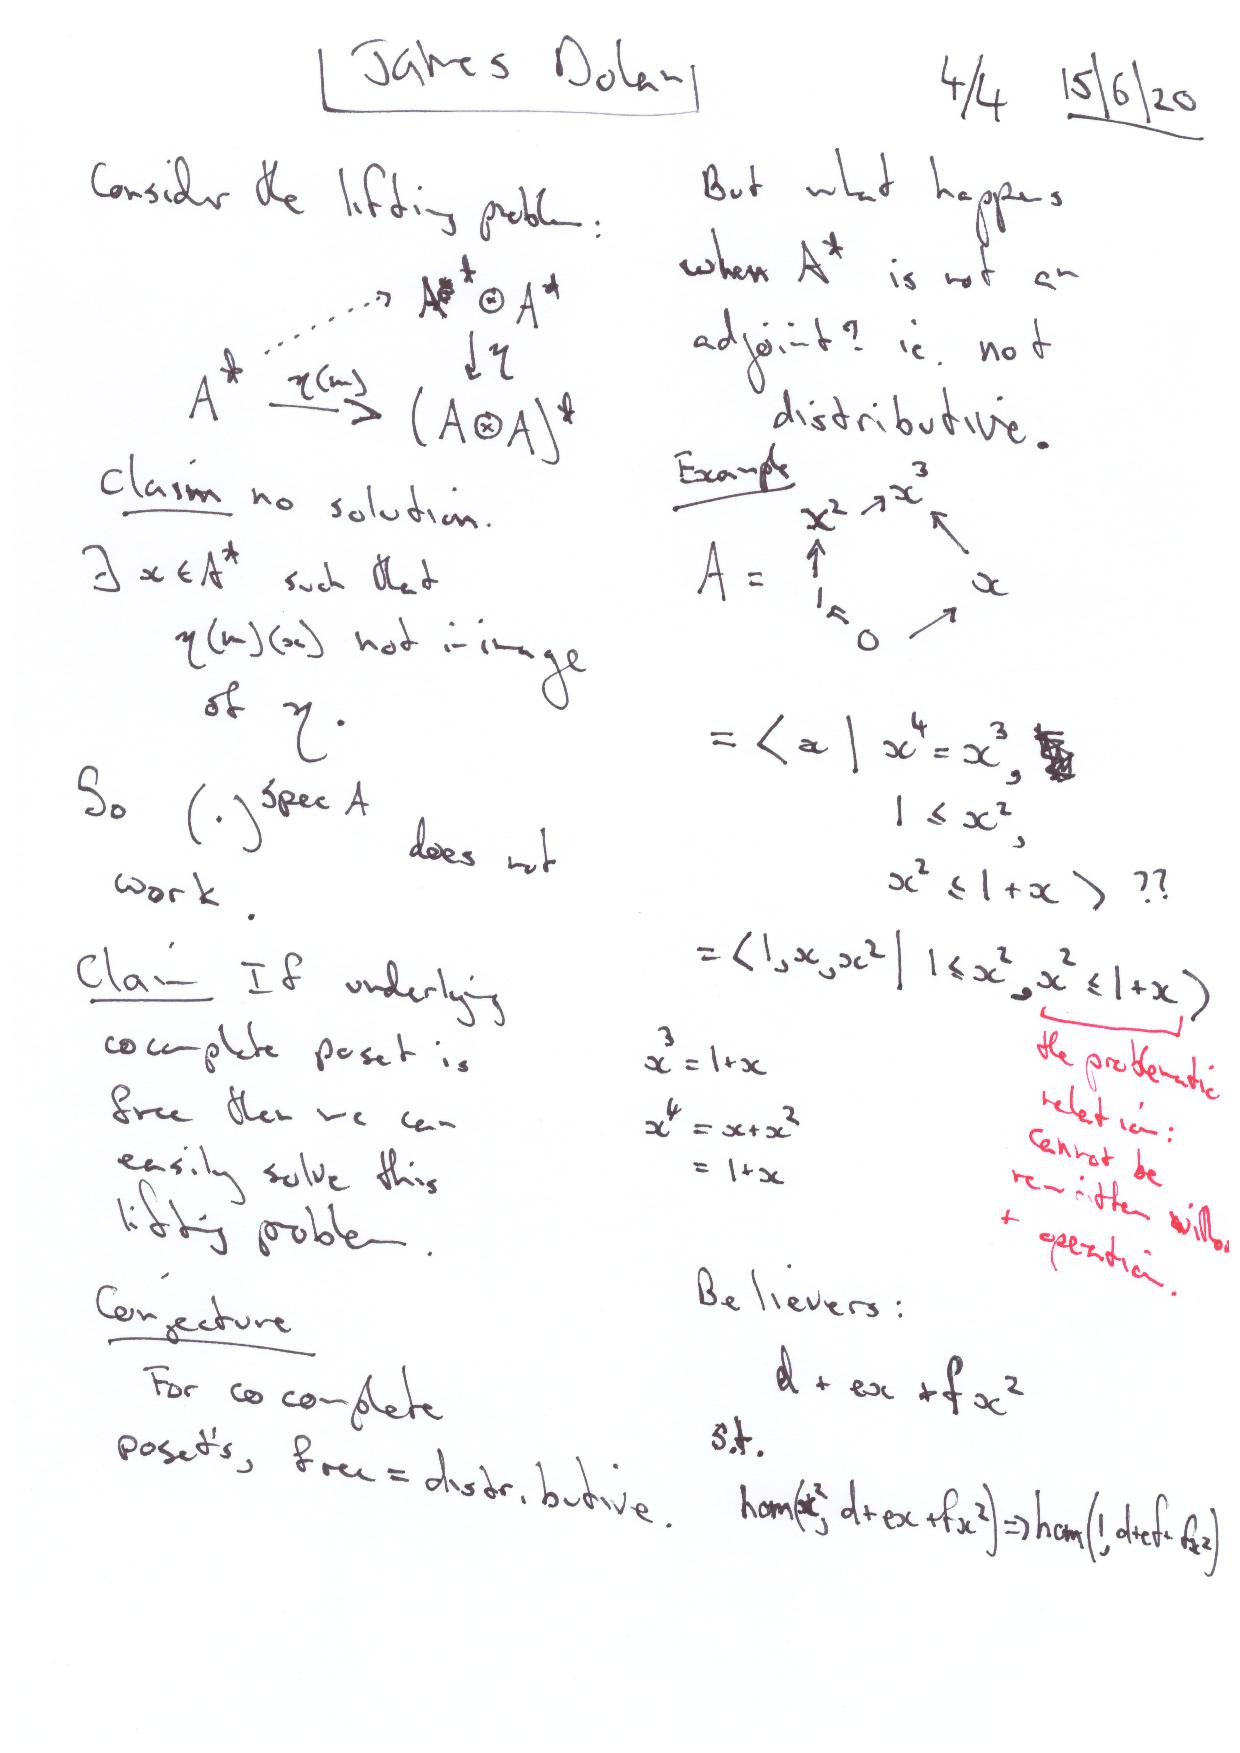 James Dolan
4/4 15/6/20
Consider the lifting problem:
A* ⊗ A*
↓ η
A* η(m) → (A⊗A)*
Claim no solution.
∃ x ∈ A* such that
η(m)(x) not in image
of η.
So (·)^spec A does not
work.
Claim If underlying
cocomplete poset is
free then we can
easily solve this
lifting problem.
Conjecture
For cocomplete
posets, free = distributive.
But what happens
when A* is not an
adjoint? ie. not
distributive.
Example
x² → x³
A = ↑ ↖ x
1 ← 0 →
= < x | x⁴ = x³,
1 ≤ x²,
x² ≤ 1 + x > ??
= < 1, x, x² | 1 ≤ x², x² ≤ 1 + x >
the problematic
relation:
cannot be
rewritten
+ operation.
x³ = 1+x
x⁴ = x + x²
= 1+x
Believers:
d + ex + fx²
s.t.
hom(x², d+ex+fx²) ⇒ hom(1, d+ef+fx²)